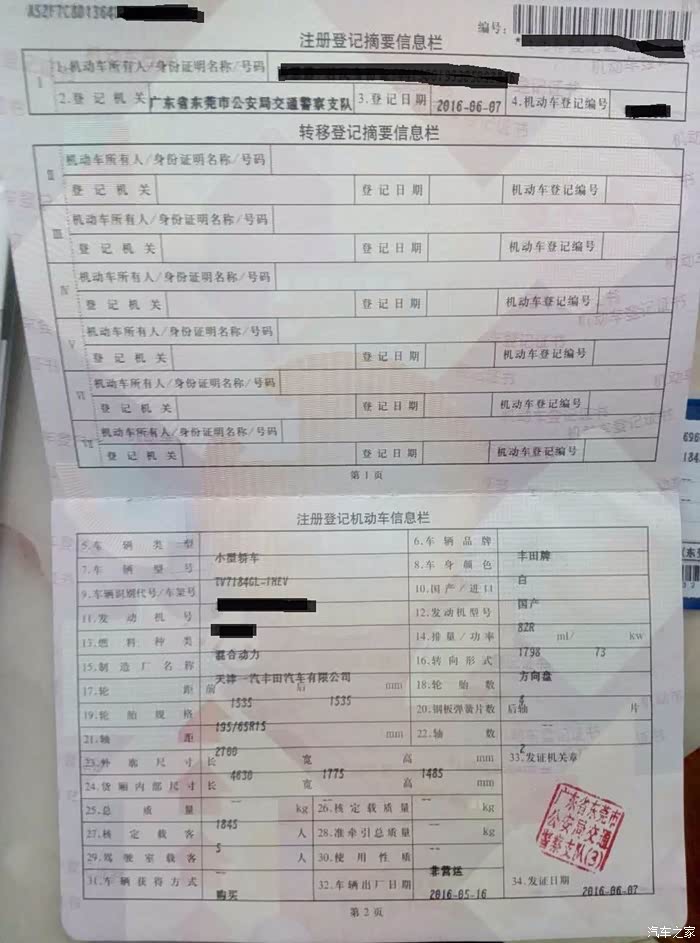 注册登记摘要信息栏
编号:
I
1.机动车所有人/身份证明名称/号码
2.登记机关 广东省东莞市公安局交通警察支队 3.登记日期 2016-06-07 4.机动车登记编号
转移登记摘要信息栏
II 机动车所有人/身份证明名称/号码
登记机关 登记日期 机动车登记编号
III 机动车所有人/身份证明名称/号码
登记机关 登记日期 机动车登记编号
IV 机动车所有人/身份证明名称/号码
登记机关 登记日期 机动车登记编号
V 机动车所有人/身份证明名称/号码
登记机关 登记日期 机动车登记编号
VI 机动车所有人/身份证明名称/号码
登记机关 登记日期 机动车登记编号
VII 机动车所有人/身份证明名称/号码
登记机关 登记日期 机动车登记编号
第1页
注册登记机动车信息栏
5.车辆类型 小型轿车 6.车辆品牌 丰田牌
7.车辆型号 TV7184GL-IHEV 8.车身颜色 白
9.车辆识别代号/车架号 10.国产/进口 国产
11.发动机号 12.发动机型号 8ZR
13.燃料种类 混合动力 14.排量/功率 1798 ml/ 73 kw
15.制造厂名称 天津一汽丰田汽车有限公司 16.转向形式 方向盘
17.轮距 前 1535 后 1535 mm 18.轮胎数 5
19.轮胎规格 195/65R15 20.钢板弹簧片数 后轴 -- 片
21.轴距 2700 mm 22.轴数 2
23.外廓尺寸 长 4630 宽 1775 高 1485 mm 33.发证机关章
24.货厢内部尺寸 长 -- 宽 -- 高 -- mm
25.总质量 1845 kg 26.核定载质量 -- kg
27.核定载客 5 人 28.准牵引总质量 -- kg
29.驾驶室载客 -- 人 30.使用性质 非营运
31.车辆获得方式 购买 32.车辆出厂日期 2016-05-16 34.发证日期 2016-06-07
广东省东莞市
公安局交通
警察支队(3)
第2页
汽车之家